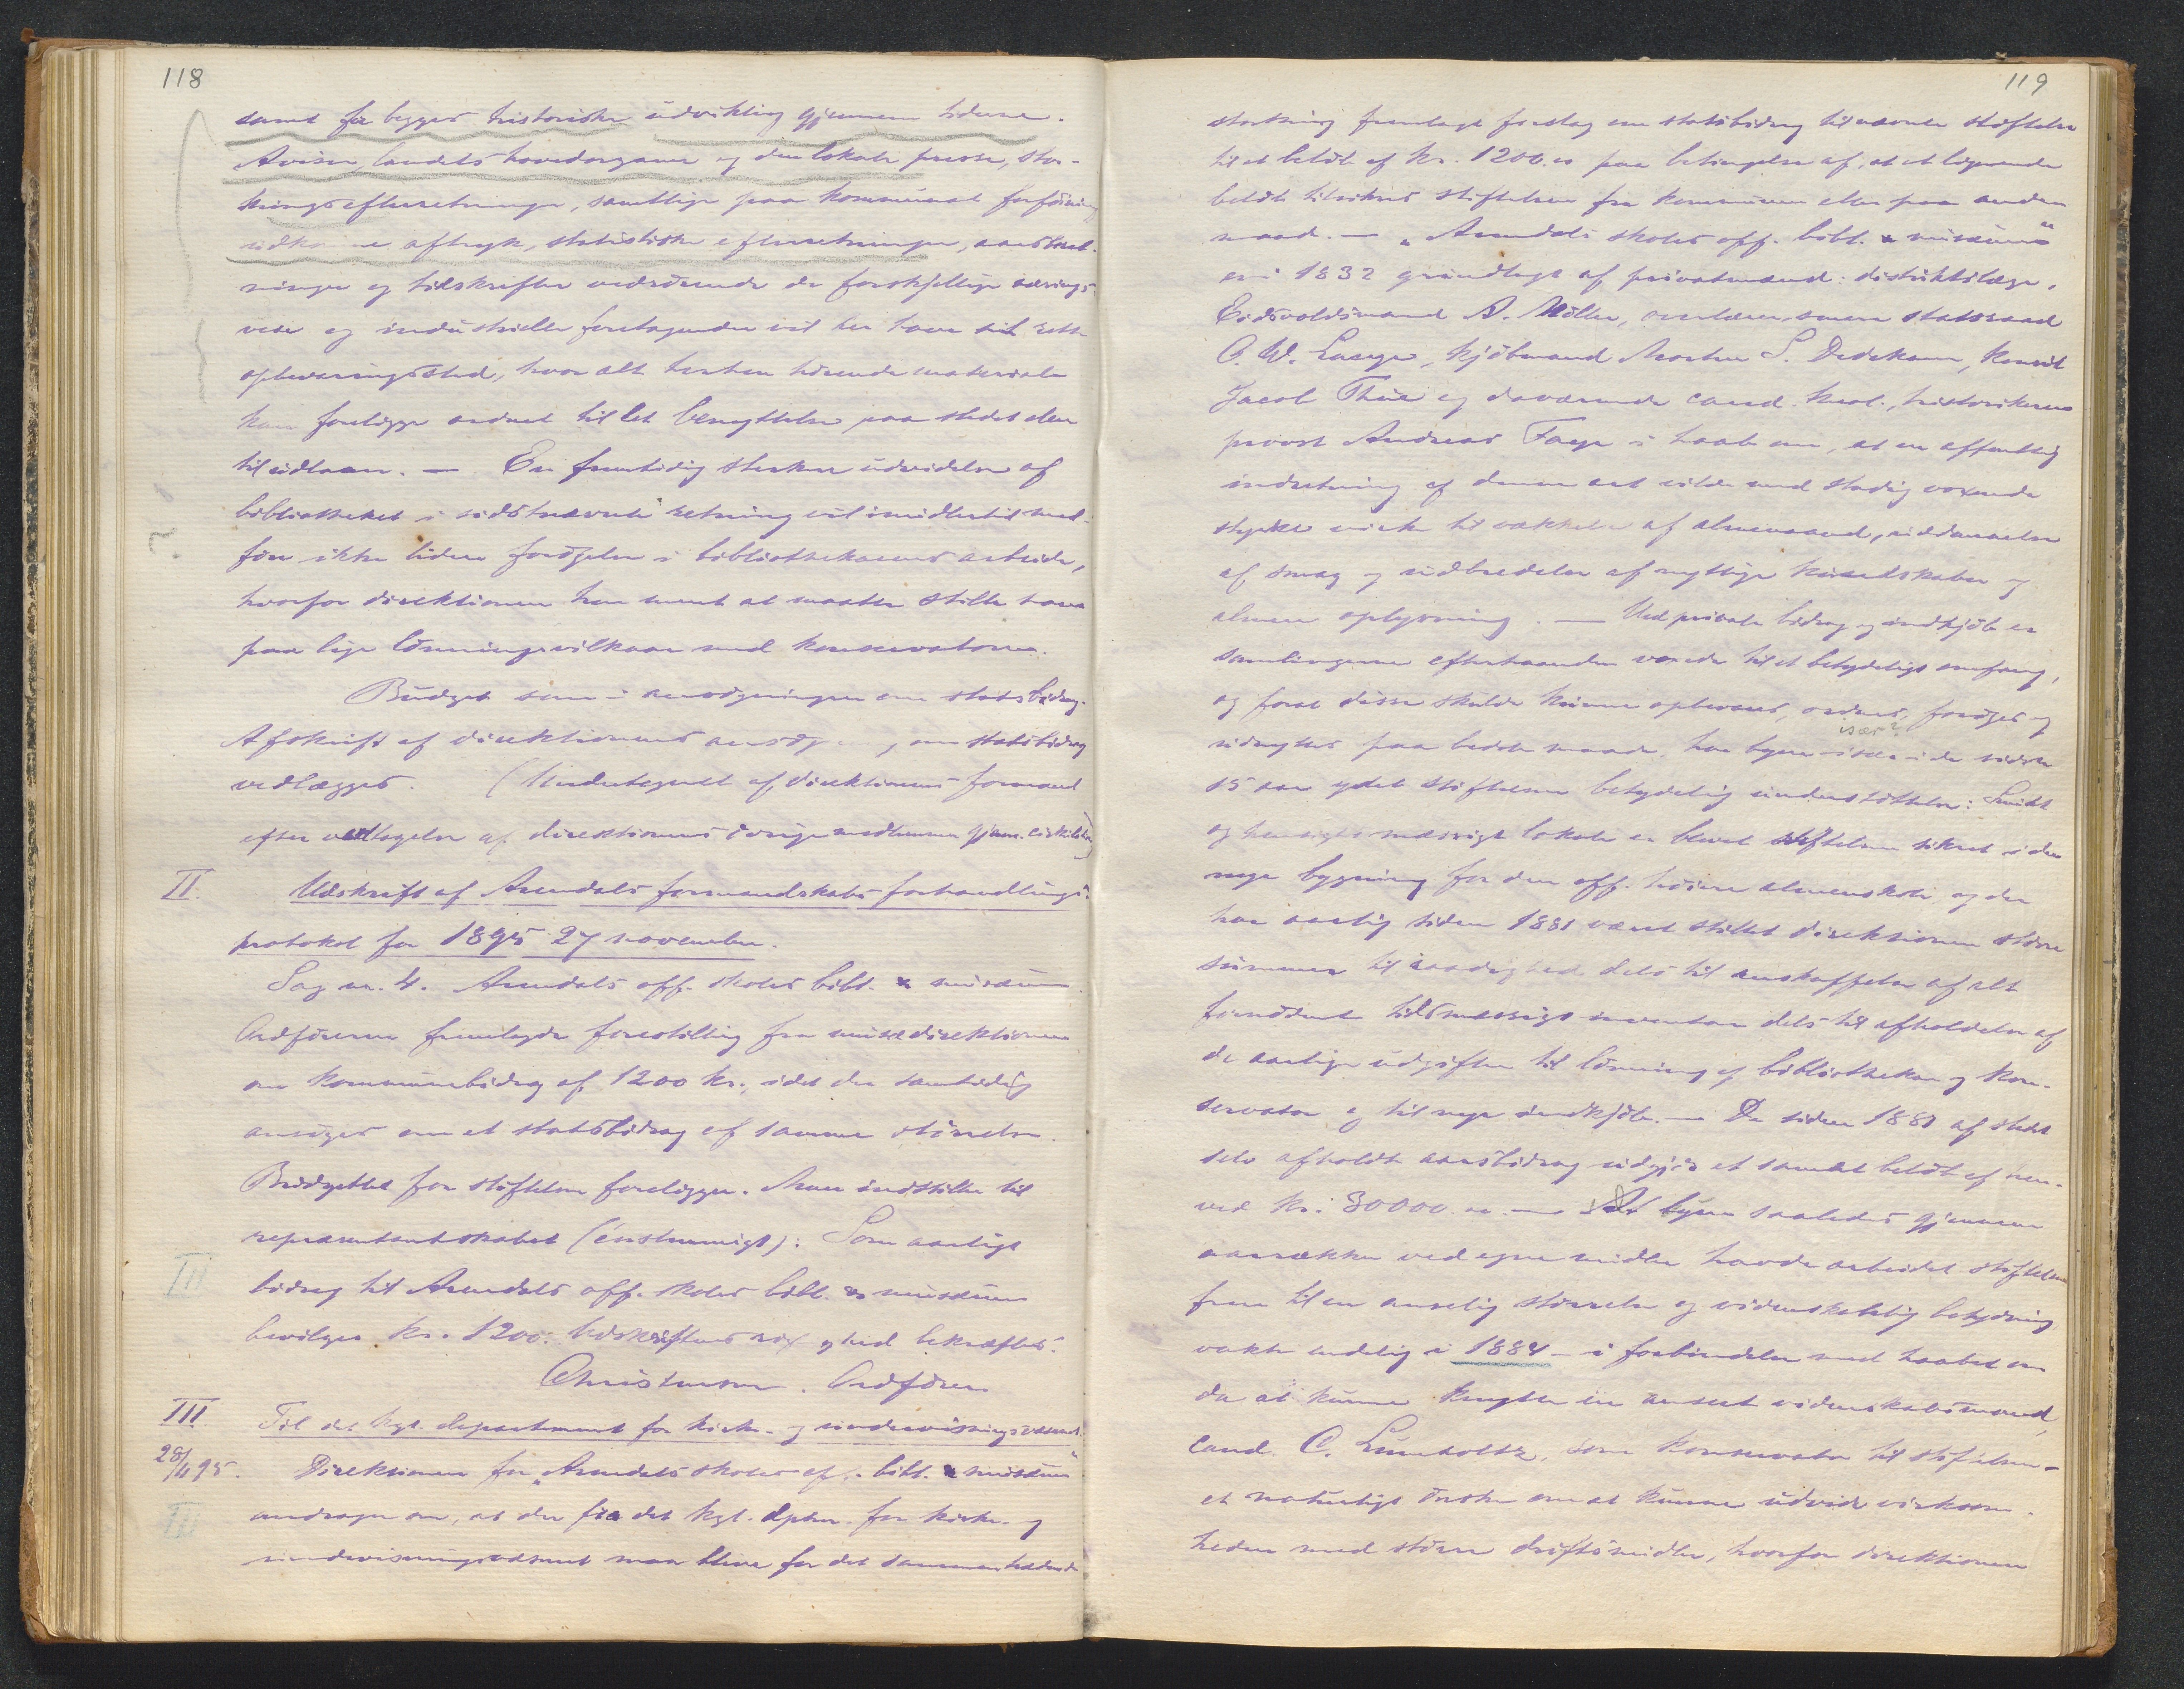 118
samt for begges historiske udvikling gjennem tiderne.
Aviser, landets hovedorganer og den lokale presse, stor-
thingsefterretninger, samtlige paa kommunal foranstaltning
udkomne aftryk, statistiske efterretninger, aarsberet-
ninger og tidsskrifter vedrörende de forskjellige nærings-
veie og industrielle foretagender vil her have sit rette
opbevaringssted, hvor alt herhen hörende materiale
kan foreligge ordnet til let benyttelse paa stedet eller
til udlaan. — En fremtidig sterkere udvidelse af
bibliotheket i sidstnævnte retning vil imidlertid med-
före ikke liden forögelse i bibliothekarens arbeide,
hvorfor direktionen har ment at maatte stille ham
paa lige lönningsvilkaar med konservatoren.
Budget som i ansögningen om statsbidrag.
Afskrift af direktionens ansögning om statsbidrag
vedlægges. (Undertegnet af direktionens formand
efter vedtagelse af direktionens övrige medlemmer gjen. cirkulation)
II. Udskrift af Arendals formandskabs forhandlings-
protokol for 1895 27 november.
Sag nr. 4. Arendals off. skoles bibl. & musæum.
Ordföreren fremlagde forestilling fra musædirektionen
om kommunebidrag af 1200 kr., idet der samtidig
ansöges om et statsbidrag af samme störrelse.
Budgettet for stiftelsen foreligger. Man indstiller til
repræsentantskabet (énstemmigt): Som aarligt
III bidrag til Arendals off. skoles bibl. & musæum
bevilges kr. 1200. Udskriftens rigtighed bekræftes.
Christensen. Ordförer
III. Til det kgl. departement for kirke- og undervisningsvæsenet.
28/11 95. Direktionen for „Arendals skoles off. bibl. & musæum"
III andrager om, at der fra det kgl. dpter. for kirke- og
undervisningsvæsenet maa blive for det sammentrædende
119
storthing fremlagt forslag om statsbidrag til nævnte stiftelse
til et belöb af kr. 1200.00 paa betingelse af, at et lignende
belöb tilsikres stiftelsen fra kommunen eller paa anden
maad. — „Arendals skoles off. bibl. & musæum"
er i 1832 grundlagt af privatmænd: distriktslæge,
Eidsvoldsmand A. Möller, overlærer, senere statsraad
O. W. Lange, kjöbmand Morten S. Dedekam, konsul
Jacob Thue og daværende cand. theol., historikeren
provst Andreas Faye i haab om, at en offentlig
indretning af denne art vilde med stadig voxende
styrke virke til vækkelse af almenaand, uddannelse
af smag og udbredelse af nyttige kundskaber og
almen oplysning. — Ved private bidrag og indkjöb er
samlingerne efterhaanden voxede til et betydeligt omfang,
og forat disse skulde kunne opbevares, ordnes, foröges og
især?
udnyttes paa bedste maade, har byen især i de sidste
15 aar ydet stiftelsen betydelig understöttelse: Smukt
og hensigtsmæssigt lokale er blevet stiftelsen sikret i den
nye bygning for den off. höiere almenskole og der
har aarlig siden 1881 været stillet direktionen större
summer til raadighed dels til anskaffelse af alt
fornödent tidsmæssigt inventar dels til afholdelse af
de aarlige udgifter til lönning af bibliothekar og kon-
servator og til nye indkjöb. — De siden 1881 af stedet
selv afholdte aarsbidrag udgjör et samlet belöb af hen-
ved kr. 30000.00. — At byen saaledes gjennem
aarrækker ved egne midler havde arbeidet stiftelsen
frem til en anselig störrelse og videnskabelig betydning
vakte endelig i 1884 — i forbindelse med haabet om
da at kunne knytte en anseet videnskabsmand,
cand. C. Lumholtz, som konservator til stiftelsen —
et naturligt önske om at kunne udvide virksom-
heden med större driftsmidler, hvorfor direktionen